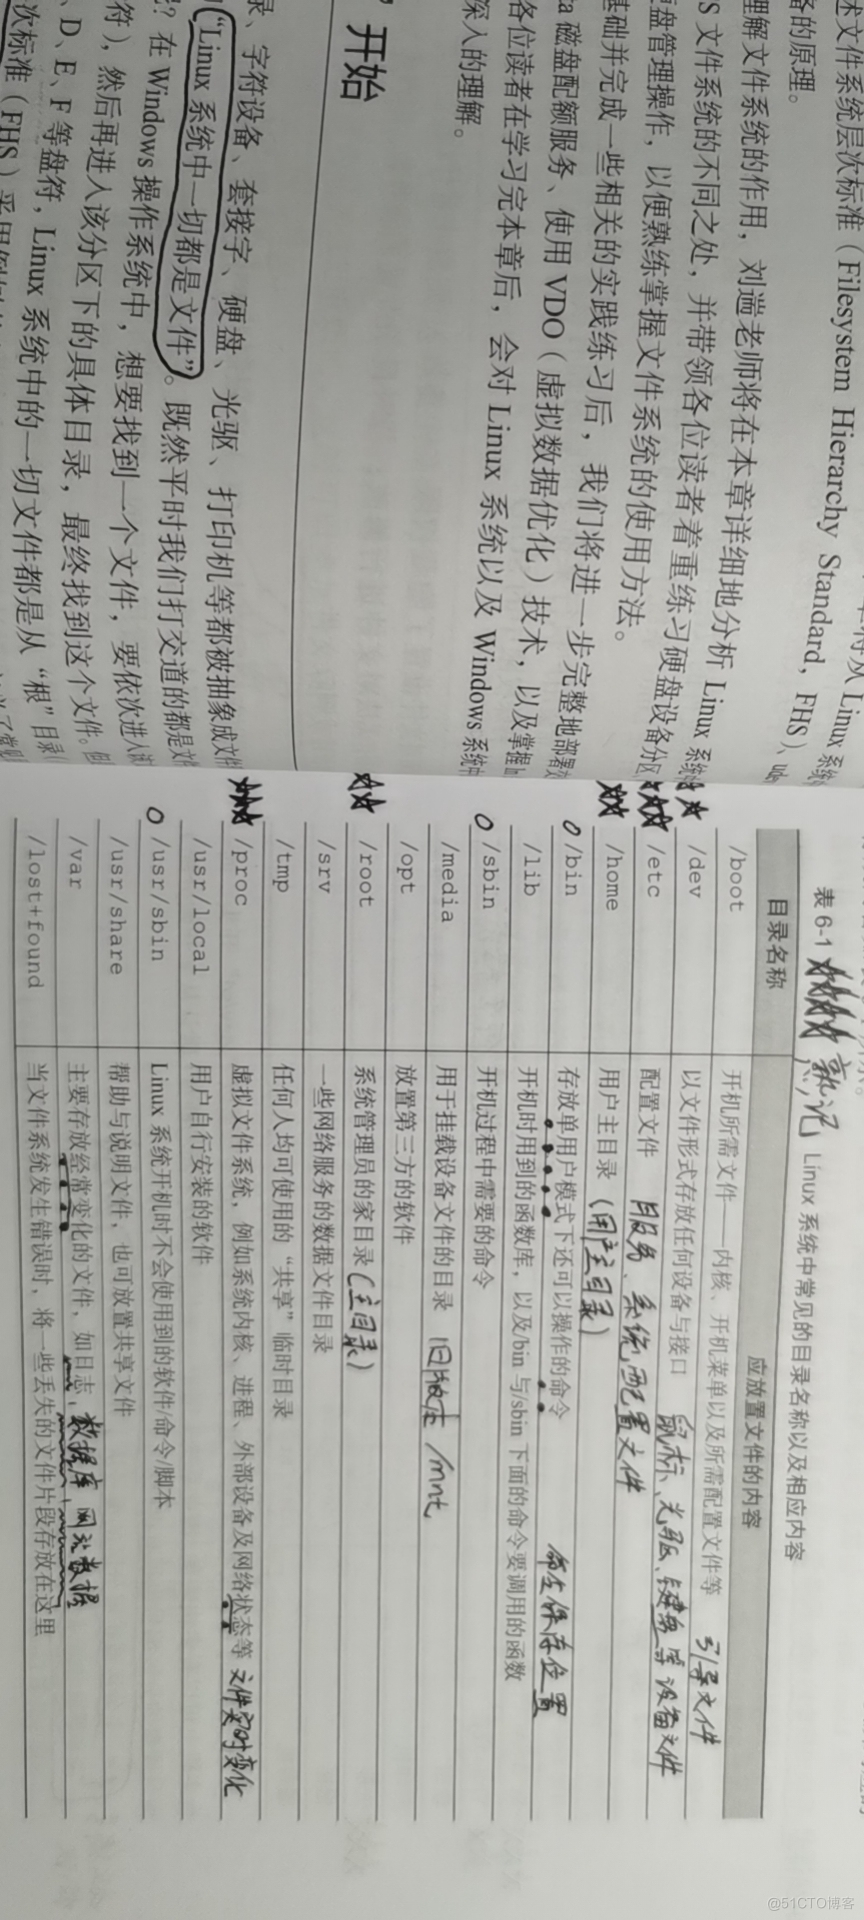 述文件系统层次标准（Filesystem Hierarchy Standard，FHS）、
备的原理。
理解文件系统的作用，刘遄老师将在本章详细地分析 Linux 系统
文件系统的不同之处，并带领各位读者着重练习硬盘设备分区
硬盘管理操作，以便熟练掌握文件系统的使用方法。
基础并完成一些相关的实践练习后，我们将进一步完整地部署
磁盘配额服务、使用 VDO（虚拟数据优化）技术，以及掌握
各位读者在学习完本章后，会对 Linux 系统以及 Windows 系统
深入的理解。
”开始
录、字符设备、套接字、硬盘、光驱、打印机等都被抽象成文件
“Linux 系统中一切都是文件”。既然平时我们打交道的都是文件
？在 Windows 操作系统中，想要找到一个文件，要依次进入
符），然后再进入该分区下的具体目录，最终找到这个文件。
D、E、F 等盘符，Linux 系统中的一切文件都是从“根”目录
次标准（FHS）采用
表 6-1 熟记 Linux 系统中常见的目录名称以及相应内容
目录名称 应放置文件的内容
/boot 开机所需文件——内核、开机菜单以及所需配置文件等 引导文件
/dev 以文件形式存放任何设备与接口 鼠标、光驱、键盘等设备文件
/etc 配置文件 服务、系统配置文件
/home 用户主目录（用户主目录）
/bin 存放单用户模式下还可以操作的命令 命令保存位置
/lib 开机时用到的函数库，以及/bin 与/sbin 下面的命令要调用的函数
/sbin 开机过程中需要的命令
/media 用于挂载设备文件的目录 旧版在 /mnt
/opt 放置第三方的软件
/root 系统管理员的家目录（主目录）
/srv 一些网络服务的数据文件目录
/tmp 任何人均可使用的“共享”临时目录
/proc 虚拟文件系统，例如系统内核、进程、外部设备及网络状态等 文件实时变化
/usr/local 用户自行安装的软件
/usr/sbin Linux 系统开机时不会使用到的软件/命令/脚本
/usr/share 帮助与说明文件，也可放置共享文件
/var 主要存放经常变化的文件，如日志，数据库 网站数据
/lost+found 当文件系统发生错误时，将一些丢失的文件片段存放在这里
@51CTO博客